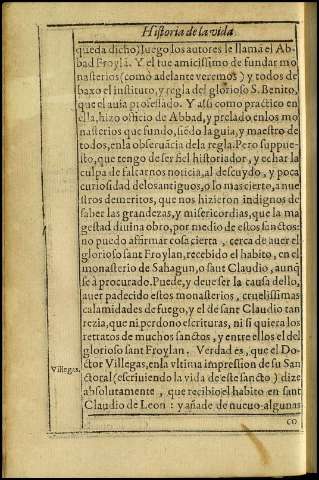 Historia de la vida
queda dicho) luego los autores le llamã el Ab-
bad Froylã. Y el fue amicissimo de fundar mo
nasterios (como adelante veremos) y todos de
baxo el instituto, y regla del glorioso S. Benito,
que el auia professado. Y assi como practico en
ella, hizo officio de Abbad, y prelado en los mo
nasterios que fundo, siẽdo la guia, y maestro de
todos, en la obseruãcia de la regla. Pero suppue-
sto, que tengo de ser fiel historiador, y echar la
culpa de faltarnos noticia, al descuydo, y poca
curiosidad de los antiguos, o lo mas cierto, a nue
stros demeritos, que nos hizieron indignos de
saber las grandezas, y misericordias, que la ma
gestad diuina obro, por medio de estos sanctos:
no puedo affirmar cosa cierta, cerca de auer el
glorioso sant Froylan, recebido el habito, en el
monasterio de Sahagun, o sant Claudio, aunq̃
se à procurado. Puede, y deue ser la causa dello,
auer padecido estos monasterios, cruelissimas
calamidades de fuego, y el de sant Claudio tan
rezia, que ni perdono escrituras, ni si quiera los
retratos de muchos sanctos, y entre ellos el del
glorioso sant Froylan. Verdad es, que el Do-
ctor Villegas, en la vltima impression de su San
Villegas.
ctoral (escriuiendo la vida de este sancto) dize
absolutamente, que recibio el habito en sant
Claudio de Leon: y añade de nueuo algunas
co